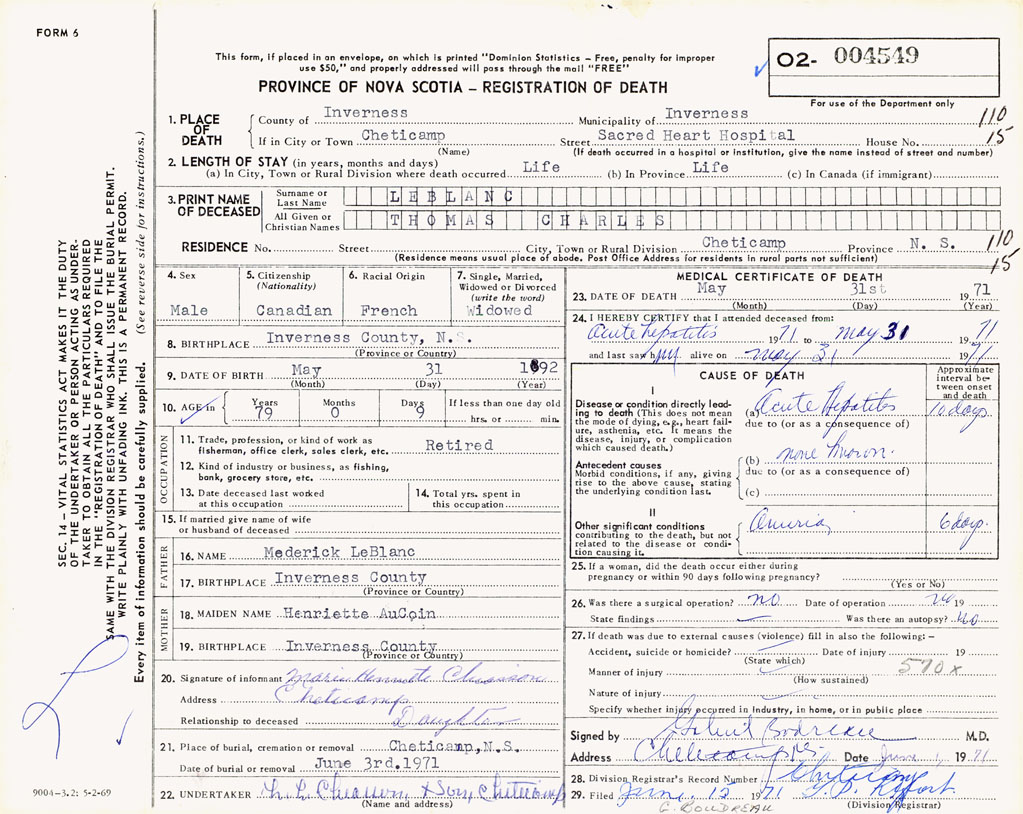 FORM 6
This form, if placed in an envelope, on which is printed "Dominion Statistics – Free, penalty for improper
use $50," and properly addressed will pass through the mail "FREE"
O2- 004549
For use of the Department only
PROVINCE OF NOVA SCOTIA – REGISTRATION OF DEATH
1. PLACE OF DEATH
County of Inverness Municipality of Inverness 110
If in City or Town Cheticamp Street Sacred Heart Hospital House No. 15
(Name) (If death occurred in a hospital or institution, give the name instead of street and number)
2. LENGTH OF STAY (in years, months and days)
(a) In City, Town or Rural Division where death occurred Life (b) In Province Life (c) In Canada (if immigrant)
3. PRINT NAME OF DECEASED
Surname or Last Name LEBLANC
All Given or Christian Names THOMAS CHARLES
RESIDENCE No. Street City, Town or Rural Division Cheticamp Province N. S. 110
(Residence means usual place of abode. Post Office Address for residents in rural parts not sufficient) 15
4. Sex
Male
5. Citizenship
(Nationality)
Canadian
6. Racial Origin
French
7. Single, Married,
Widowed or Divorced
(write the word)
Widowed
8. BIRTHPLACE Inverness County, N.S.
(Province or Country)
9. DATE OF BIRTH May 31 1892
(Month) (Day) (Year)
10. AGE in Years Months Days If less than one day old
79 0 9 hrs. or min.
OCCUPATION
11. Trade, profession, or kind of work as
fisherman, office clerk, sales clerk, etc. Retired
12. Kind of industry or business, as fishing,
bank, grocery store, etc.
13. Date deceased last worked
at this occupation
14. Total yrs. spent in
this occupation
15. If married give name of wife
or husband of deceased
FATHER
16. NAME Mederick LeBlanc
17. BIRTHPLACE Inverness County
(Province or Country)
MOTHER
18. MAIDEN NAME Henriette AuCoin
19. BIRTHPLACE Inverness County
(Province or Country)
20. Signature of informant Marie Henriette Chiasson
Address Cheticamp
Relationship to deceased Daughter
21. Place of burial, cremation or removal Cheticamp,N.S.
Date of burial or removal June 3rd.1971
22. UNDERTAKER Chiasson & Son, Cheticamp
(Name and address)
MEDICAL CERTIFICATE OF DEATH
23. DATE OF DEATH May 31st 1971
(Month) (Day) (Year)
24. I HEREBY CERTIFY that I attended deceased from:
Acute hepatitis 1971 to May 31 1971
and last saw him alive on May 31 1971
CAUSE OF DEATH
Approximate
interval be-
tween onset
and death
I
Disease or condition directly lead-
ing to death (This does not mean
the mode of dying, e.g., heart fail-
ure, asthenia, etc. It means the
disease, injury, or complication
which caused death.)
(a) Acute Hepatitis 10 days
due to (or as a consequence of)
Antecedent causes
Morbid conditions, if any, giving
rise to the above cause, stating
the underlying condition last.
(b) none known
due to (or as a consequence of)
(c)
II
Other significant conditions
contributing to the death, but not
related to the disease or condi-
tion causing it.
Anuria 6 days.
25. If a woman, did the death occur either during
pregnancy or within 90 days following pregnancy?
(Yes or No)
26. Was there a surgical operation? no Date of operation no 19
State findings Was there an autopsy? No
27. If death was due to external causes (violence) fill in also the following: –
Accident, suicide or homicide? Date of injury 19
(State which)
Manner of injury 570x
(How sustained)
Nature of injury
Specify whether injury occurred in Industry, in home, or in public place
Signed by M.D.
Address Cheticamp NS Date June 1, 1971
28. Division Registrar's Record Number Cheticamp
29. Filed June 12 1971
G. BOUDREAU (Division Registrar)
SEC. 14 – VITAL STATISTICS ACT MAKES IT THE DUTY
OF THE UNDERTAKER OR PERSON ACTING AS UNDER-
TAKER TO OBTAIN ALL THE PARTICULARS REQUIRED
IN THE "REGISTRATION OF DEATH" AND TO FILE THE
SAME WITH THE DIVISION REGISTRAR WHO SHALL ISSUE THE BURIAL PERMIT.
WRITE PLAINLY WITH UNFADING INK. THIS IS A PERMANENT RECORD.
Every item of information should be carefully supplied. (See reverse side for instructions.)
9004–3.2: 5-2-69